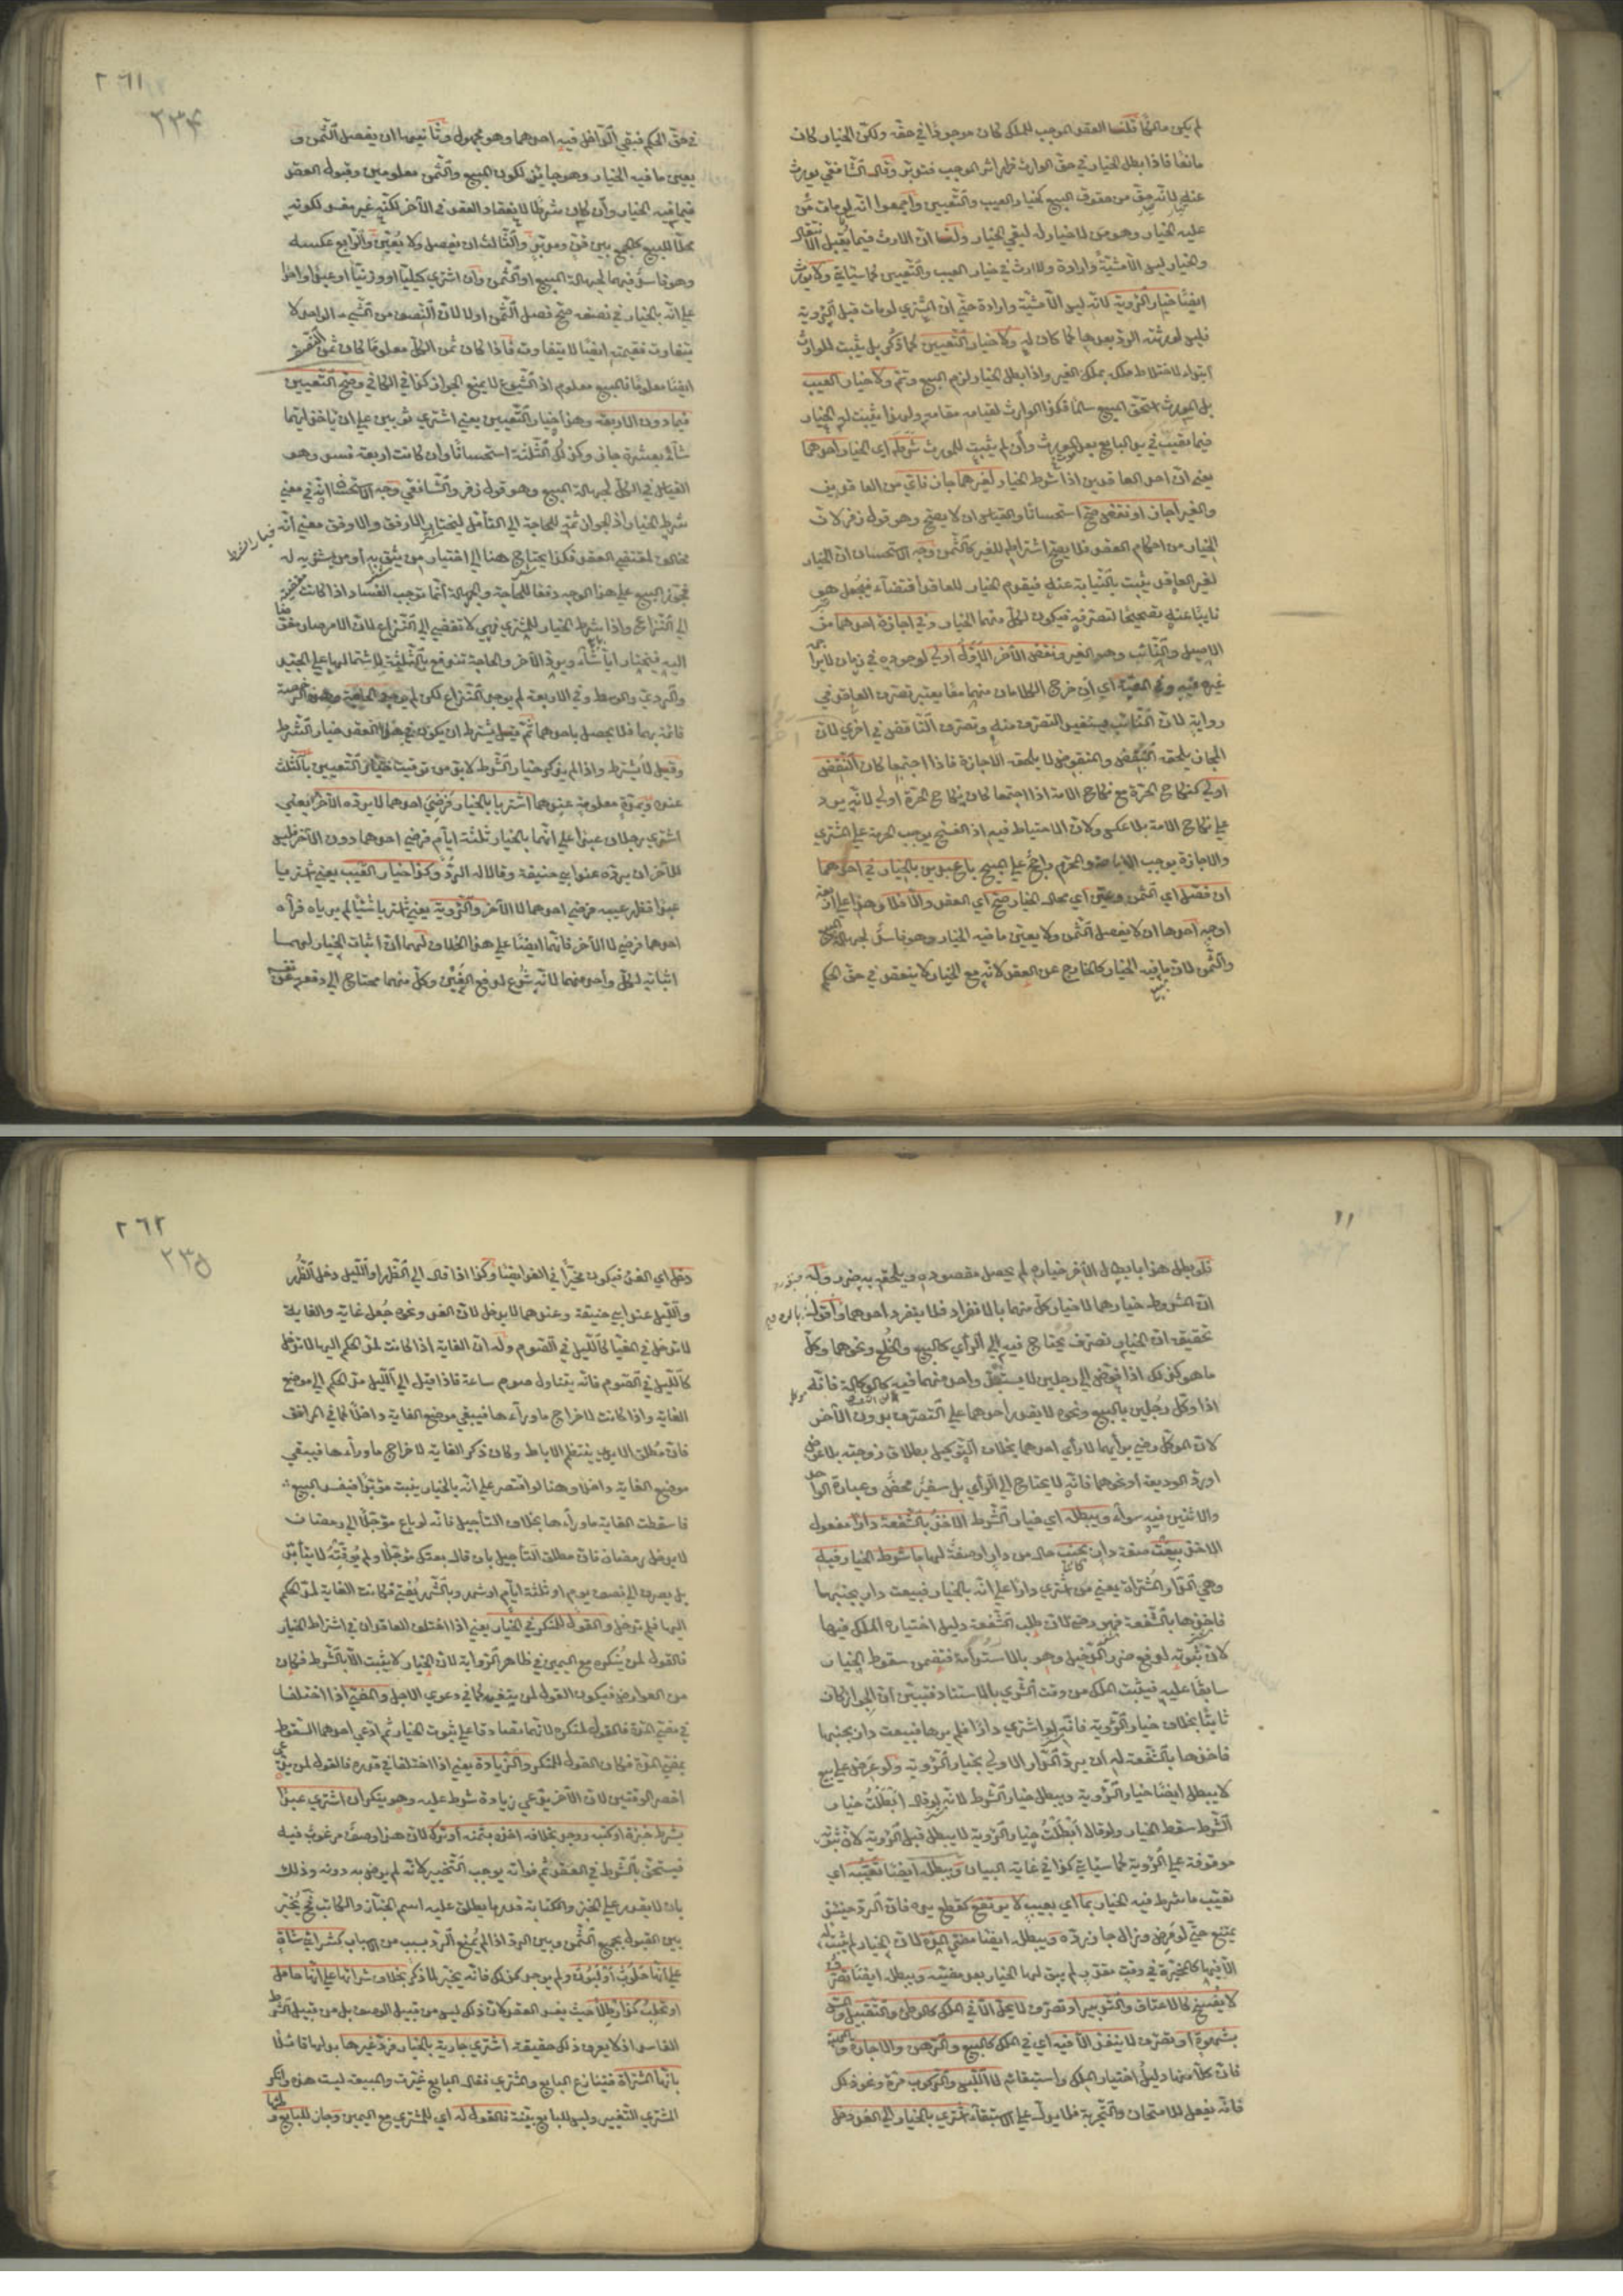 لم يكن مالكا قلنا العقد الموجب للملك كان موجودا في حقه ولكن الخيار كان
مانعا فاذا بطل الخيار في حق الوارث ظهر اثر الموجب فتدبر وقال الشافعي يورث
عنه لانه حق من حقوق المبيع كخيار العيب والتعيين واجمعوا انه لو مات من
عليه الخيار وهو من لا خيار له لبقي الخيار ولنا ان الارث فيما يقبل الانتقال
والخيار ليس الا مشية وارادة والارث في خيار العيب والتعيين كما سيأتي ولا يورث
ايضا خيار الرؤية لانه ليس الا مشية وارادة حتى ان المشتري لو مات قبل الرؤية
فليس لورثته الرد بعدها كما كان له ولا خيار التعيين كما ذكر بل يثبت للوارث
ابتداء لاختلاط ملكه بملك الغير واذا بطل الخيار لزم البيع وتم ولا خيار العيب
بل المورث استحق المبيع سالما فكذا الوارث لقيامه مقامه ولهذا يثبت له الخيار
فيما تعيب في يد البايع بعد المورث وان لم يثبت للمورث شرط اي الخيار احدهما
يعني ان احد العاقدين اذا شرط الخيار لغيرهما جاز فاي من العاقدين
والغير اجاز او نقض صح استحسانا والقياس ان لا يصح وهو قول زفر لان
الخيار من احكام العقد فلا يصح اشتراطه للغير كالثمن وجه الاستحسان ان الخيار
لغير العاقد يثبت بالنيابة عنه فيقوم الخيار للعاقد اقتضاء فيجعل هو
نايبا عنه تصحيحا لتصرفه فيكون لكل منهما الخيار وفي اجازة احدهما من
الاصيل والنائب وهو الغير ونقض الآخر الاول اولى لوجوده في زمان لا يزاحمه
غيره فيه وفي المعية اي ان خرج الكلامان منهما معا يعتبر تصرف العاقد في
رواية لان النائب يستفيد التصرف منه وتصرف الناقض في اخرى لان
المجاز يلحقه النقض والمنقوض لا يلحقه الاجازة فاذا اجتمعا كان النقض
اولى كنكاح الحرة مع نكاح الامة اذا اجتمعا كان نكاح الحرة اولى لانه يرد
على نكاح الامة بلا عكس ولان الاحتياط فيه اذ الفسخ يوجب الحرمة على المشتري
والاجازة يوجب الاباحة والمحرم راجح على المبيح باع عبدين بالخيار في احدهما
ان فصل اي الثمن وعين اي محل الخيار صح اي العقد والا فلا وهذا على اربعة
اوجه احدها ان لا يفصل الثمن ولا يعين ما فيه الخيار وهو فاسد لجهالة المبيع
والثمن لان ما فيه الخيار كالخارج عن العقد لانه مع الخيار لا ينعقد في حق الحكم
٢٦١
٢٣٤
في حق الحكم فبقي الداخل فيه احدهما وهو مجهول وثانيها ان يفصل الثمن و
يعين ما فيه الخيار وهو جايز لكون المبيع والثمن معلومين وقبول العقد
فيما فيه الخيار وان كان شرطا لانعقاد العقد في الآخر لكنه غير مفسد لكونه
محلا للبيع كالجمع بين قن ومدبر والثالث ان يفصل ولا يعين والرابع عكسه
وهو فاسد فيهما لجهالة المبيع او الثمن وان اشترى كيليا او وزنيا او عبدا واحدا
على انه بالخيار في نصفه صح فصل الثمن اولا لان النصف من الشيء الواحد لا
يتفاوت فقيمته ايضا لا يتفاوت فاذا كان ثمن الكل معلوما كان ثمن النصف
ايضا معلوما فالمبيع معلوم اذ الشيوع لا يمنع الجواز كذا في الكافي وصح التعيين
فيما دون الاربعة وهذا خيار التعيين يعني اشترى ثوبين على ان ياخذ ايهما
شاء بعشرة جاز وكذلك الثلثة استحسانا وان كانت اربعة فسد وهو
القياس في الكل لجهالة المبيع وهو قول زفر والشافعي وجه الاستحسان انه في معنى
شرط الخيار اذ الجواز ثمة للحاجة الى التأمل ليختار الارفق والاوفق معنى انه
خيار الشرط
مخالف لمقتضى العقد فكذا يحتاج هنا الى اختيار من يثق به او من يشتريه له
فجوز البيع على هذا الوجه دفعا للحاجة والجهالة انما توجب الفساد اذا كانت مفضية
الى التنازع واذا شرط الخيار للمشتري فهي لا تفضي الى التنازع لان الامر صار مفوضا
اليه فيختار ايا شاء ويرد الآخر والحاجة تندفع بالثلثة لاشتمالها على الجيد
والردي والوسط وفي الاربعة لم يوجد التنازع لكن لم يوجد الحاجة وهذه الرخصة
قائمة بهما فلا يحصل باحدهما ثم قيل يشترط ان يكون في هذا العقد خيار الشرط
وقيل لا يشترط واذا لم يذكر خيار الشرط لابد من توقيت خيار التعيين بالثلث
عنده وبمدة معلومة عندهما اشتريا بالخيار فرضي احدهما لا يرده الآخر يعني
اشترى رجلان عبدا على انهما بالخيار ثلثة ايام فرضي احدهما دون الآخر فليس
للآخر ان يرده عند ابي حنيفة وقالا له الرد وكذا خيار العيب يعني اشتريا
عبدا فظهر عيبه فرضي احدهما لا الآخر والرؤية يعني اشتريا شيئا لم يرياه فرآه
احدهما فرضي لا الآخر فانها ايضا على هذا الخلاف لهما ان اثبات الخيار لهما
اثباته لكل واحد منهما لانه شرع لدفع الغبن وكل منهما محتاج الى دفعه عن نفسه
١١
فلو بطل هذا بابطال الآخر خياره لم يحصل مقصوده ويلحقه به ضرر وله
ان المشروط خيارهما لا خيار كل منهما بالانفراد فلا ينفرد احدهما واقول
تحقيقه ان الخيار تصرف يحتاج فيه الى الرأي كالبيع والخلع ونحوهما وكل
ما هو كذلك اذا فوض الى رجلين لا يستبد واحد منهما فيه كالوكالة فانه
اذا وكل رجلين بالبيع ونحوه لا يقدر احدهما على التصرف بدون الآخر
لان الموكل رضي برأيهما لا رأي احدهما بخلاف التوكيل بطلاق زوجته بلا عوض
او رد الوديعة او نحوهما فانه لا يحتاج الى الرأي بل سفير محض وعبارة الواحد
والاثنين فيه سواء ويبطله اي خيار الشرط الاخذ بالشفعة دارا مفعول
الاخذ بيعت صفة دار بجنب حال من دار او صفة لها ما شرط الخيار فيه
وهي الدار المشتراة يعني من اشترى دارا على انه بالخيار فبيعت دار بجنبها
فاخذها بالشفعة فهو رضى لان طلب الشفعة دليل اختياره الملك فيها
لان ثبوته لدفع ضرر الدخيل وهو بالاستدامة فتضمن سقوط الخيار
سابقا عليه فيثبت الملك من وقت الشرى بالاستناد فتبين ان الجوار كان
ثابتا بخلاف خيار الرؤية فانه لو اشترى دارا فلم يرها فبيعت دار بجنبها
فاخذها بالشفعة له ان يرد الدار الاولى بخيار الرؤية ولو عرض على بيع
لا يبطل ايضا خيار الرؤية ويبطل خيار الشرط لانه لو قال ابطلت خيار
الشرط سقط الخيار ولو قال ابطلت خيار الرؤية لا يبطل قبل الرؤية لان ثبوته
موقوفة على الرؤية كما سيأتي كذا في غاية البيان ويبطله ايضا تعيبه اي
تعيب ما شرط فيه الخيار بما اي بعيب لا يرتفع كقطع يده فان الرد حينئذ
يمتنع حتى لو مرض وزال جاز رده ويبطله ايضا مضي المدة لان الخيار لم يثبت له
الا فيها كالمخيرة في وقت مقدر لم يبق لها الخيار بعد مضيه ويبطله ايضا تصرف
لا يفسخ كالاعتاق والتدبير او تصرف لا يحل الا في الملك كالوطئ والتقبيل والمس
بشهوة او تصرف لا ينفذ الا فيه اي في الملك كالبيع والرهن والاجارة والهبة
فان كلا منها دليل اختيار الملك واستبقائه لا اللبس والركوب مرة ونحو ذلك
فانه يفعل للامتحان والتجربة فلا يدل على الاستبقاء اشترى بالخيار الى الغد دخل
٢٦٢
٢٣٥
دخل اي الغد فيكون مخيرا في الغد ايضا وكذا اذا قال الى الظهر او الليل دخل الظهر
والليل عند ابي حنيفة وعندهما لا يدخل لان الغد ونحوه جعل غاية والغاية
لا تدخل في المغيا كالليل في الصوم وله ان الغاية اذا كانت لمد الحكم اليها لا تدخل
كالليل في الصوم فانه يتناول صوم ساعة فاذا قيل الى الليل مد الحكم الى موضع
الغاية واذا كانت لاخراج ما وراءها فيبقي موضع الغاية داخلا كما في المرافق
فان مطلق الايدي ينتظم الاباط وكان ذكر الغاية لاخراج ما وراءها فيبقى
موضع الغاية داخلا وهنا لو اقتصر على انه بالخيار يثبت مؤبدا فيفسد البيع
فاسقطت الغاية ما وراءها بخلاف التأجيل فانه لو باع مؤجلا الى رمضان
لا يدخل رمضان فان مطلق التأجيل بان قال بعتك مؤجلا ولم يوقته لا يتأبد
بل يصرف الى نصف يوم او ثلثة ايام او شهر وبالشهر يفتى فكانت الغاية لمد الحكم
اليها فلم تدخل والقول للمنكر في الخيار يعني اذا اختلف العاقدان في اشتراط الخيار
فالقول لمن ينكره مع اليمين في ظاهر الرواية لان الخيار لا يثبت الا بالشرط فكان
من العوارض فيكون القول لمن ينفيه كما في دعوى الاجل والمضي اذا اختلفا
في مضي المدة فالقول لمنكره لانهما تصادقا على ثبوت الخيار ثم ادعى احدهما السقوط
بمضي المدة فكان القول للمنكر والزيادة يعني اذا اختلفا في قدره فالقول لمن يدعي
اخصر الوقتين لان الآخر يدعي زيادة شرط عليه وهو ينكر ان اشترى عبدا
بشرط خبزه او كتبه ووجد بخلافه اخذه بثمنه او ترك لان هذا وصف مرغوب فيه
فيستحق بالشرط في العقد ثم فواته يوجب التخيير لانه لم يرض به دونه وذلك
بان لا يقدر على الخبز والكتابة قدر ما يطلق عليه اسم الخباز والكاتب ثم يخير
بين القبول بجميع الثمن وبين الرد اذا لم يمنع الرد بسبب من الاسباب كشرائي شاة
على انها حلوب او لبون ولم يوجد كذلك فانه يخير لما ذكر بخلاف شرائها على انها حامل
او تحلب كذا رطلا حيث يفسد العقد لان ذلك ليس من قبيل الوصف بل من قبيل الشرط
الفاسد اذ لا يعرف ذلك حقيقة اشترى جارية بالخيار فرد غيرها بدلها قائلا
بانها المشتراة فتنازع البايع والمشتري فقال البايع غيرت والمبيعة ليست هذه وانكر
المشتري التغيير وليس للبايع بينة فالقول له اي للمشتري مع اليمين وجاز للبايع وطئها